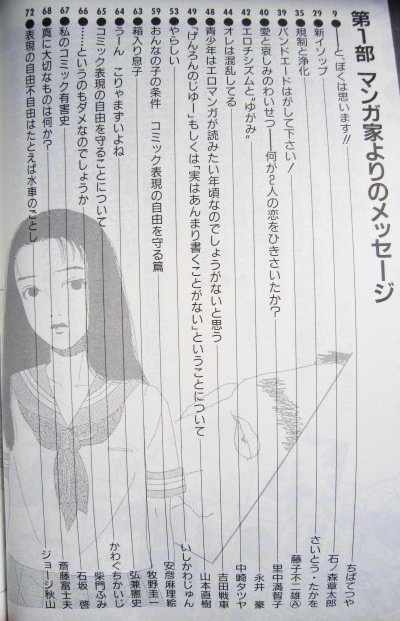 第1部 マンガ家よりのメッセージ
9 ●―と、ぼくは思います!! ちばてつや
29 ●新イソップ 石ノ森章太郎
35 ●規制と浄化 さいとう・たかを
39 ●バンドエードはがして下さい! 藤子不二雄Ⓐ
40 ●愛と哀しみのわいせつ―何が2人の恋をひきさいたか? 里中満智子
42 ●エロチシズムと“ゆがみ” 永井 豪
44 ●オレは混乱してる 中崎タツヤ
48 ●青少年はエロマンガが読みたい年頃なのでしょうがないと思う 吉田戦車
49 ●「げんろんのじゆー」もしくは「実はあんまり書くことがない」ということについて 山本直樹
53 ●やらしい いしかわじゅん
59 ●おんなの子の条件 コミック表現の自由を守る篇 安彦麻理絵
63 ●箱入り息子 牧野圭一
64 ●うーん こりゃまずいよね 弘兼憲史
65 ●コミック表現の自由を守ることについて かわぐちかいじ
66 ●……というのもダメなのでしょうか 柴門ふみ
67 ●私のコミック有害史 石坂 啓
68 ●真に大切なものは何か? 斎藤富士夫
72 ●表現の自由不自由はたとえば水車のごとし ジョージ秋山